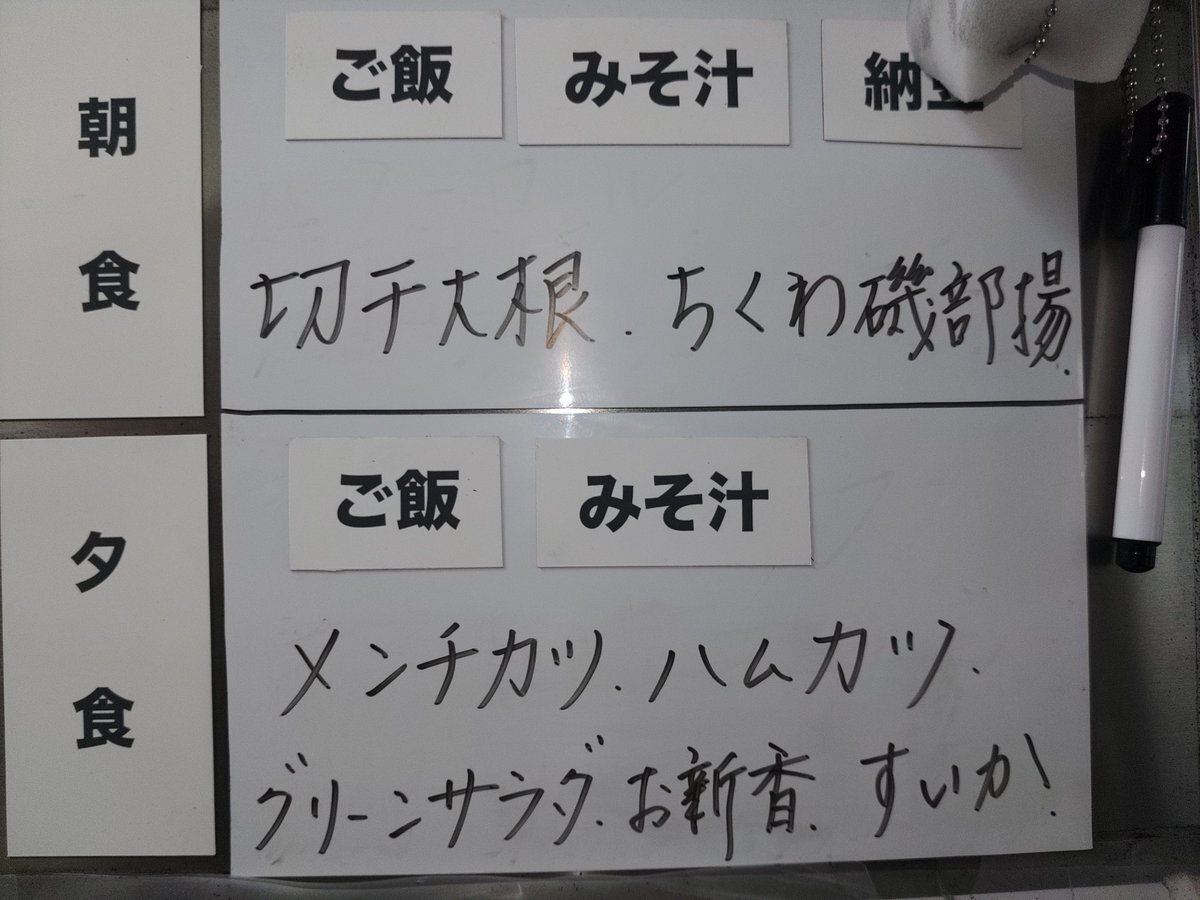 朝食
ご飯 みそ汁 納豆
切干大根.ちくわ磯部揚.
夕食
ご飯 みそ汁
メンチカツ.ハムカツ.
グリーンサラダ.お新香.すいか!